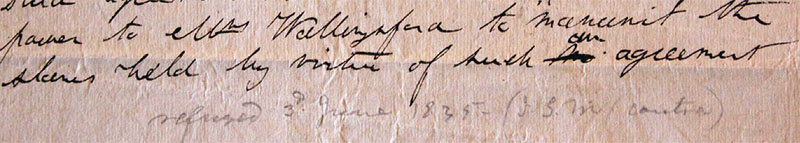 said agree
power to Mrs Wallingsford to "manumit the
slaves held by virtue of such an agreement
refused 3d June 1835 - (J. S. M. contra)